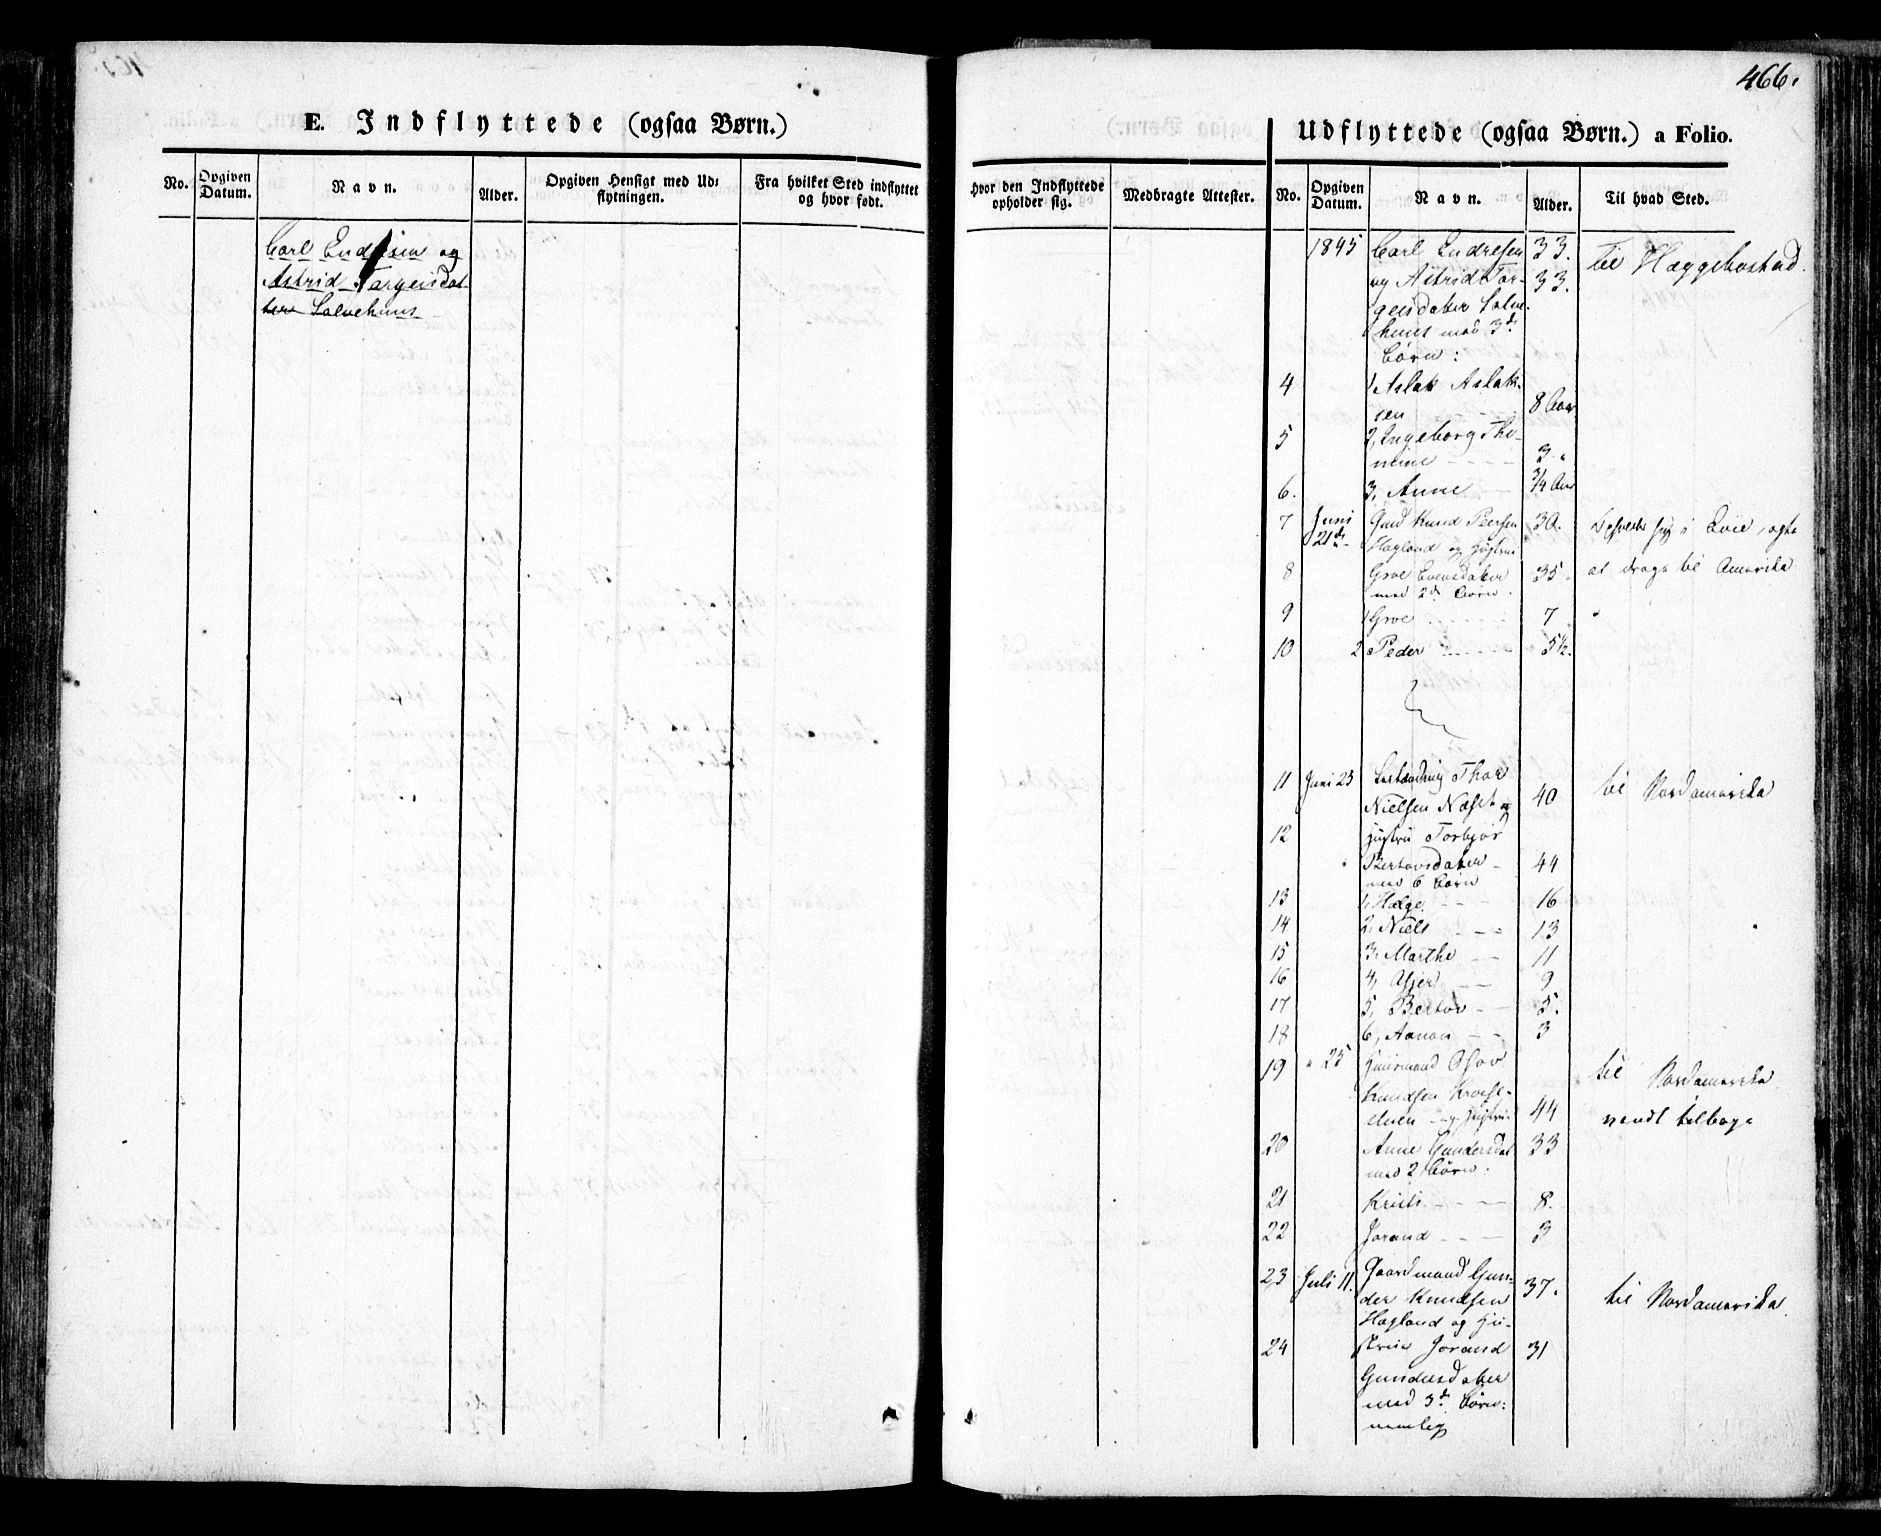 466.
E. Indflyttede (ogsaa Børn.)
No.
Opgiven Datum.
Navn.
Alder.
Opgiven Hensigt med Ud=
flytningen.
Fra hvilket Sted indflyttet
og hvor født.
Carl Endresen og
Astrid Torgeisdat
ter Salvehuus
Udflyttede (ogsaa Børn.) a Folio.
Hvor den Indflyttede
opholder sig.
Medbragte Attester.
No.
Opgiven Datum.
Navn.
Alder.
Til hvad Sted.
1845 Carl Endresen 33. til Hæggebostad.
og Astrid Tor- 33.
geisdatter Salve-
huus med 3de
Børn:
4 1, Aslak Aslak-
sen 8 Aar
5 2, Ingeborg The-
mine 3 "
6. 3, Anne 3/4 Aar
7 Juni Gmd Knud Peersen 30. i Evie, agte
21de Hagland og Hustrue
8 Groe Evensdatter 35 at drage til Amerika
med 2de Børn.
9 1 Groe 7 "
10 2 Peder 5 1/2.
11 Juni 23 Thor til Nordamerika
Nielsen Næset og 40
12 Hustru Torbjør
Bertovsdatter 44
med 6 Børn
13 1, Helge 16
14 2, Niels 13
15 3, Marthe 11
16 4, Asjer 9
17 5, Bertov 5.
18 6, Aanon 3
19 " 25 Huusmand Olav til Nordamerika
Knudsen
og Hustru 44 vendt tilbage
20 Anne Gundersdat 33
med 2 Børn:
21 Kristi 8.
22 Jorand 3
23 Juli 11. Gaardmand Gun- 37. til Nordamerika
der Knudsen
Hagland og Hu-
24 strue Jorand 31
Gundersdatter
med 3de Børn:
nemlig